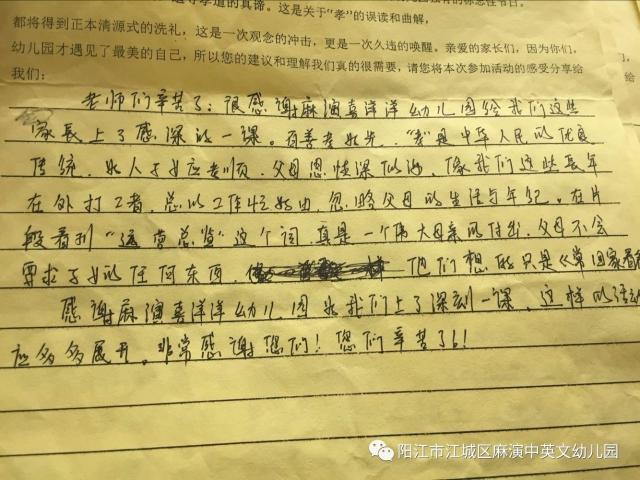 遵守孝道的真谛。这是关于“孝”的误读和曲解,
都将得到正本清源式的洗礼,这是一次观念的冲击,更是一次久违的唤醒。亲爱的家长们,因为你们,
幼儿园才遇见了最美的自己,所以您的建议和理解我们真的很需要,请您将本次参加活动的感受分享给
我们:
老师们辛苦了;很感谢麻演喜洋洋幼儿园给我们这些
家长上了感深的一课。百善孝为先,“孝”是中华人民的优良
传统,为人子女应孝顺,父母恩情深似海,像我们这些长年
在外打工者,总以工作忙为由,忽略父母的生活与年纪。在片
段看到“运营总监”这个词,真是一个伟大母亲的付出,父母不会
要求子女的任何东西,他们想的只是《常回家看看
感谢麻演喜洋洋幼儿园为我们上了深刻一课,这样的活动
应多多展开。非常感谢您们!您们辛苦了!!
阳江市江城区麻演中英文幼儿园